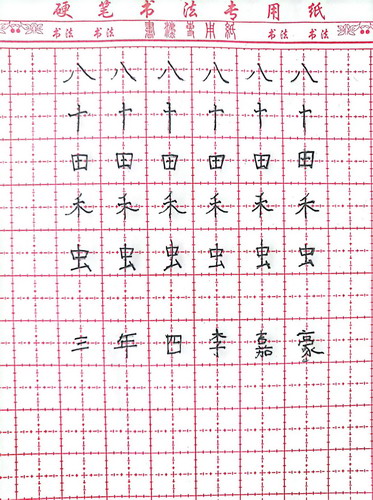 硬笔书法专用纸
书法 书法 書法专用纸 书法 书法
八八八八八八
十十十十十十
田田田田田田
禾禾禾禾禾禾
虫虫虫虫虫虫
三年四李嘉豪